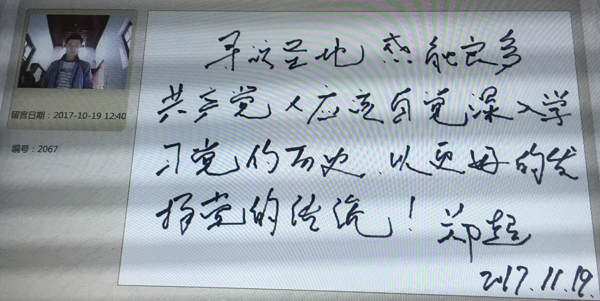 留言日期：2017-10-19 12:40
编号：2067
圣地 感 良多
共产党人应该自觉深入学
习党的历史，以更好的发
扬党的传统！
郑
2017.11.19.